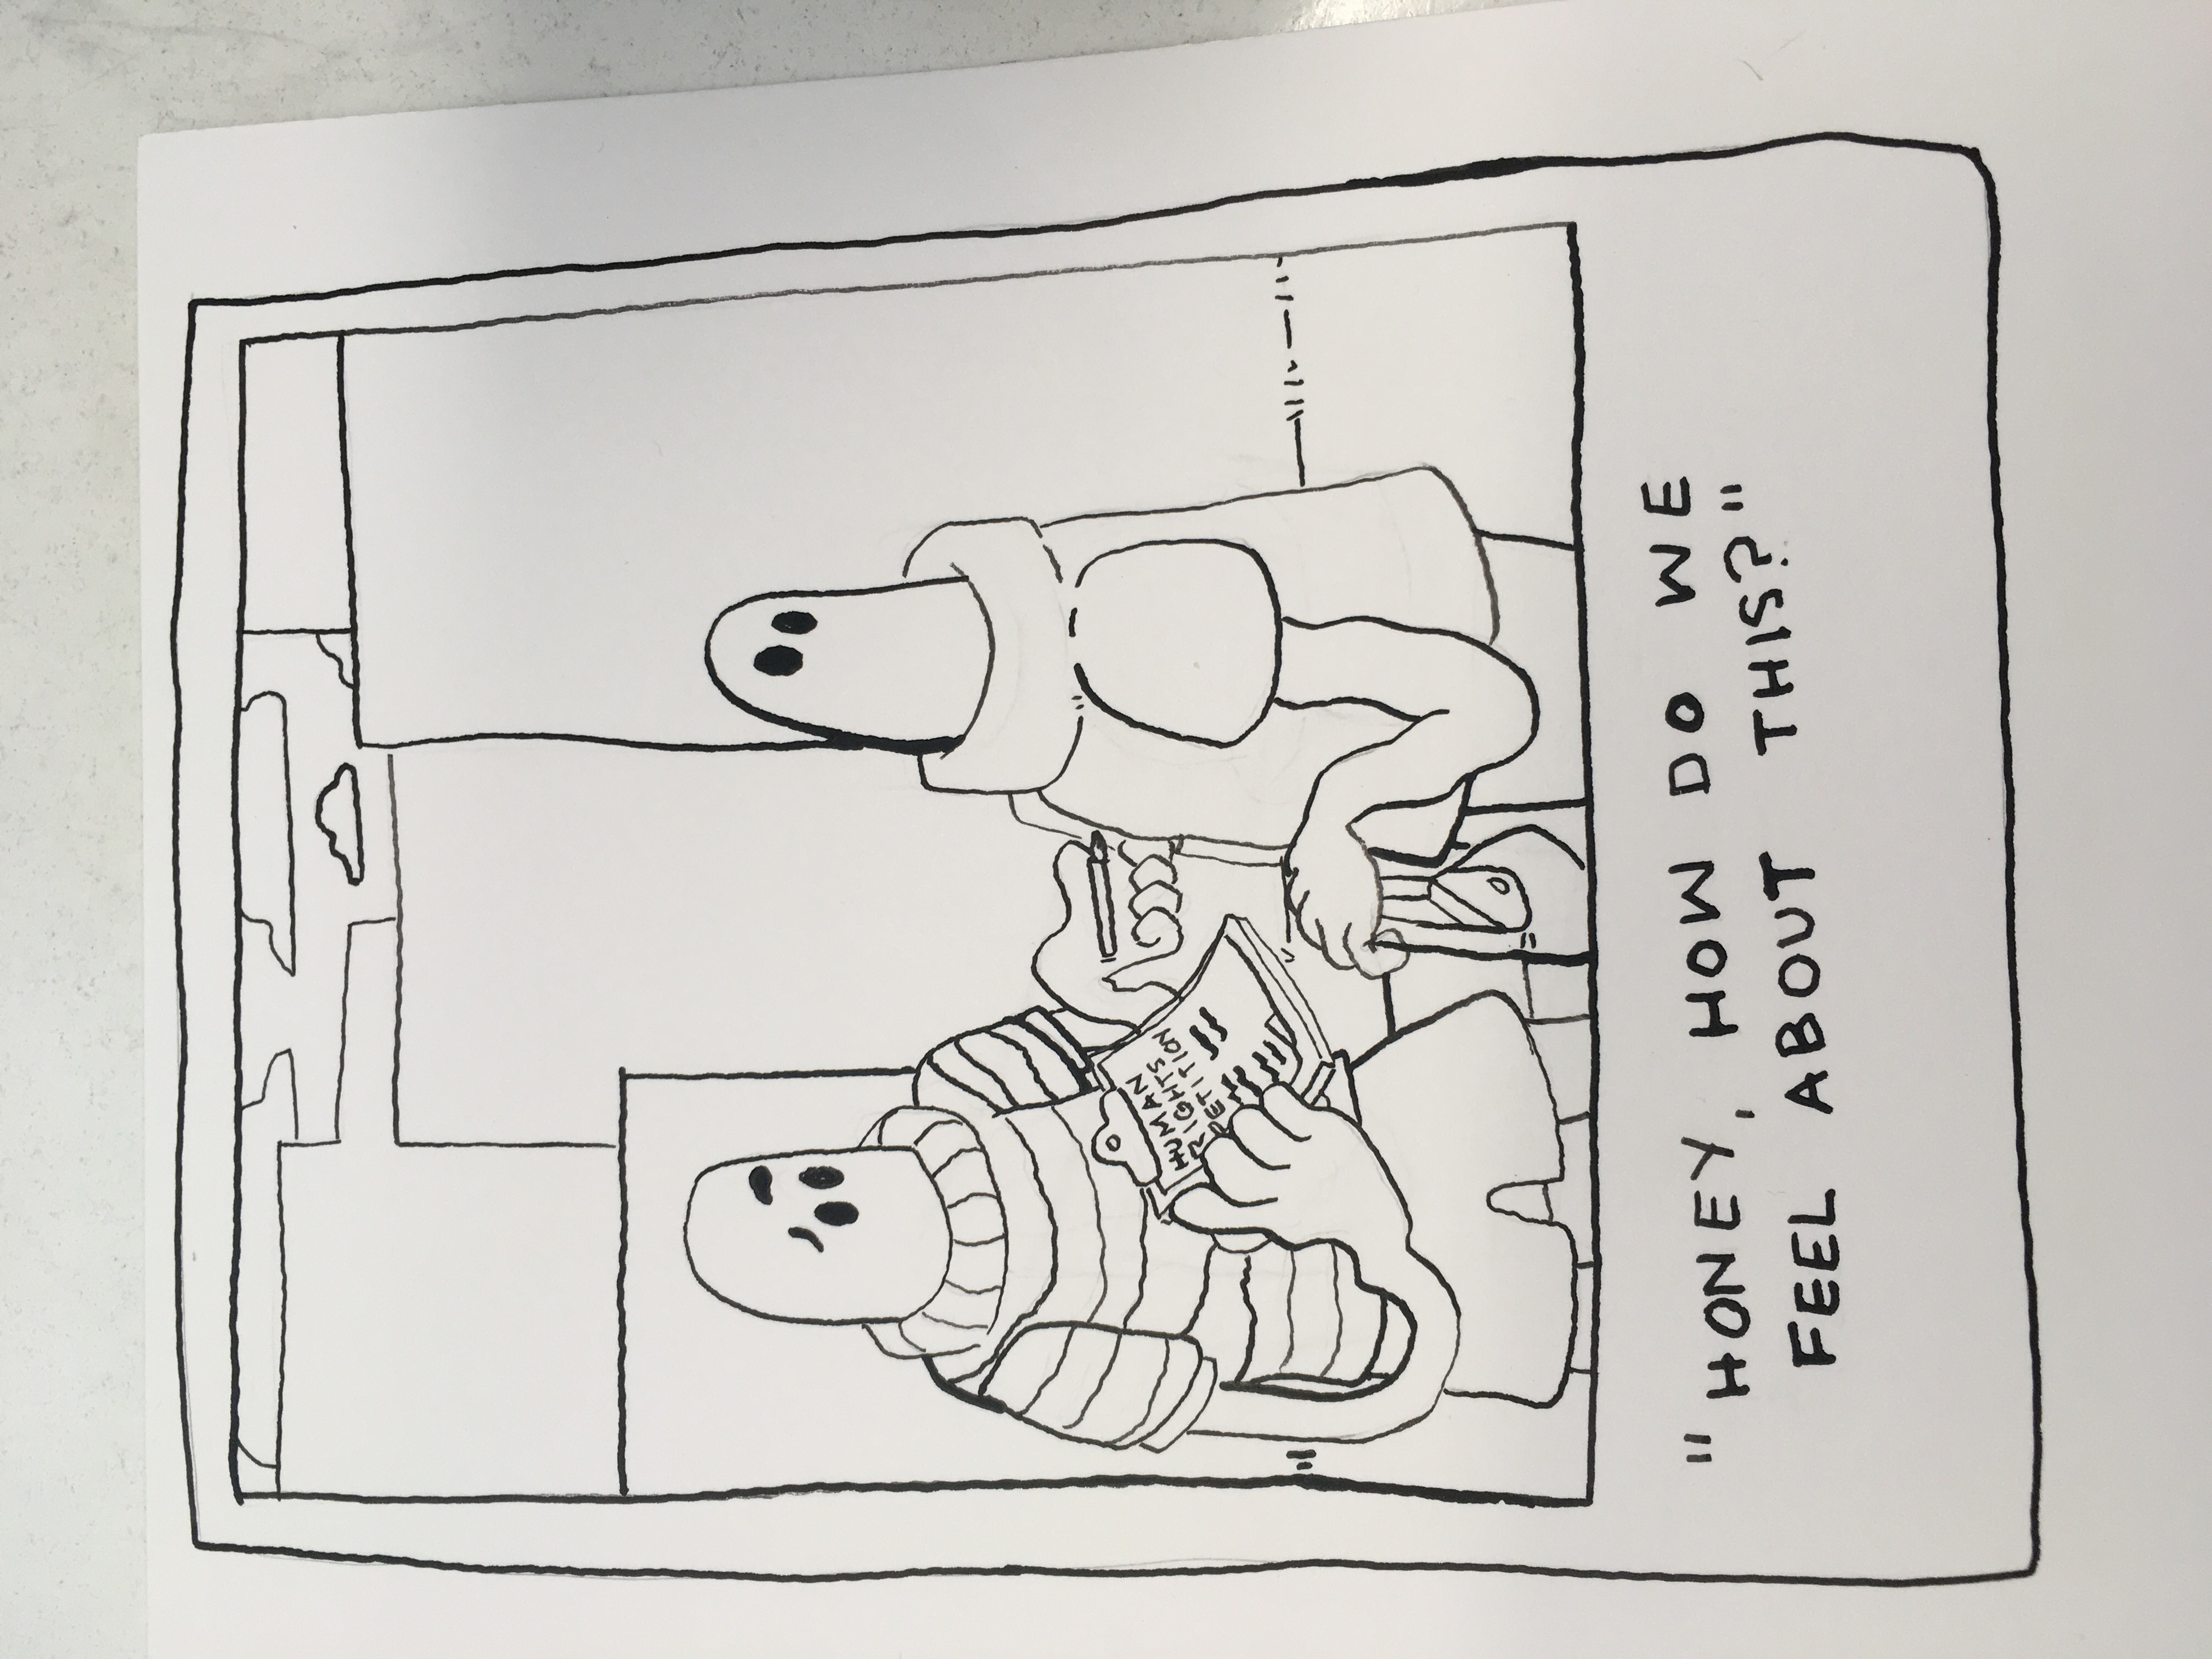 HUMAN
RIGHTS
PETITION
"HONEY, HOW DO WE
FEEL ABOUT THIS?"